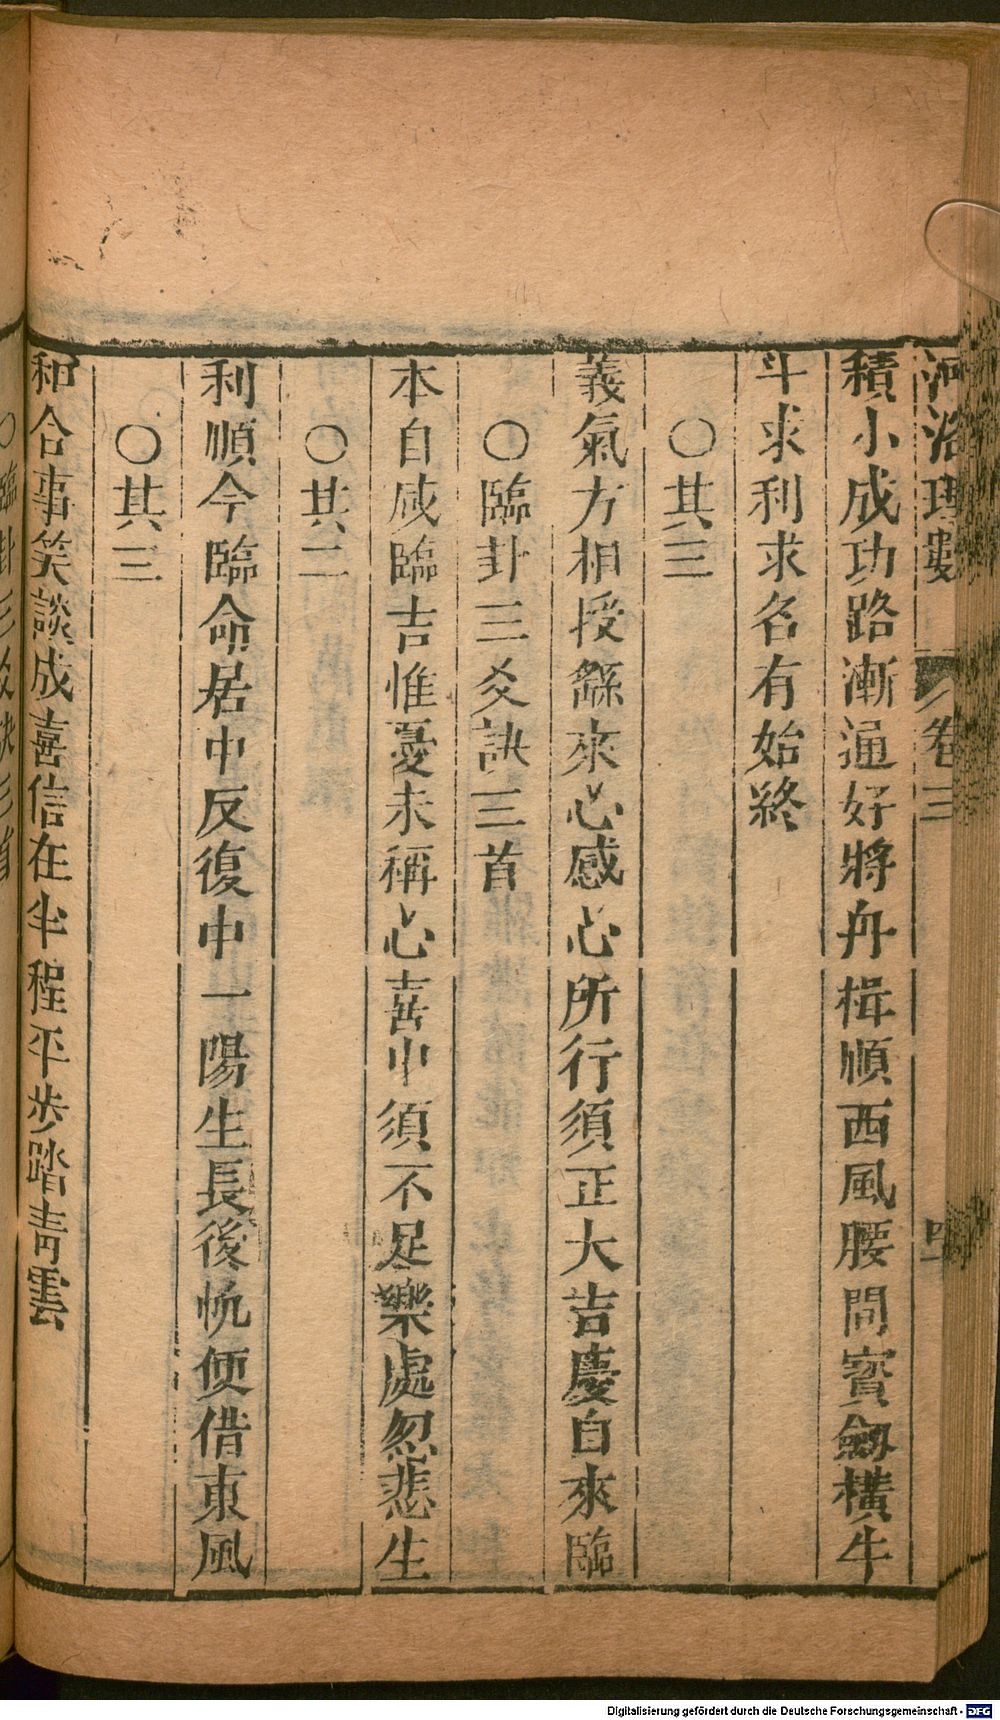 河洛理數 卷三 四
積小成功路漸通好將舟楫順西風腰間寶劍橫牛
斗求利求名有始終
○其三
義氣方相授繇來心感心所行須正大吉慶自來臨
○臨卦三爻訣三首
本自咸臨吉惟憂未稱心喜中須不足樂處忽悲生
○其二
利順今臨命居中反復中一陽生長後帆便借東風
○其三
和合事笑談成喜信在半程平步踏青雲
○臨卦三爻訣三首
Digitalisierung gefördert durch die Deutsche Forschungsgemeinschaft - DFG